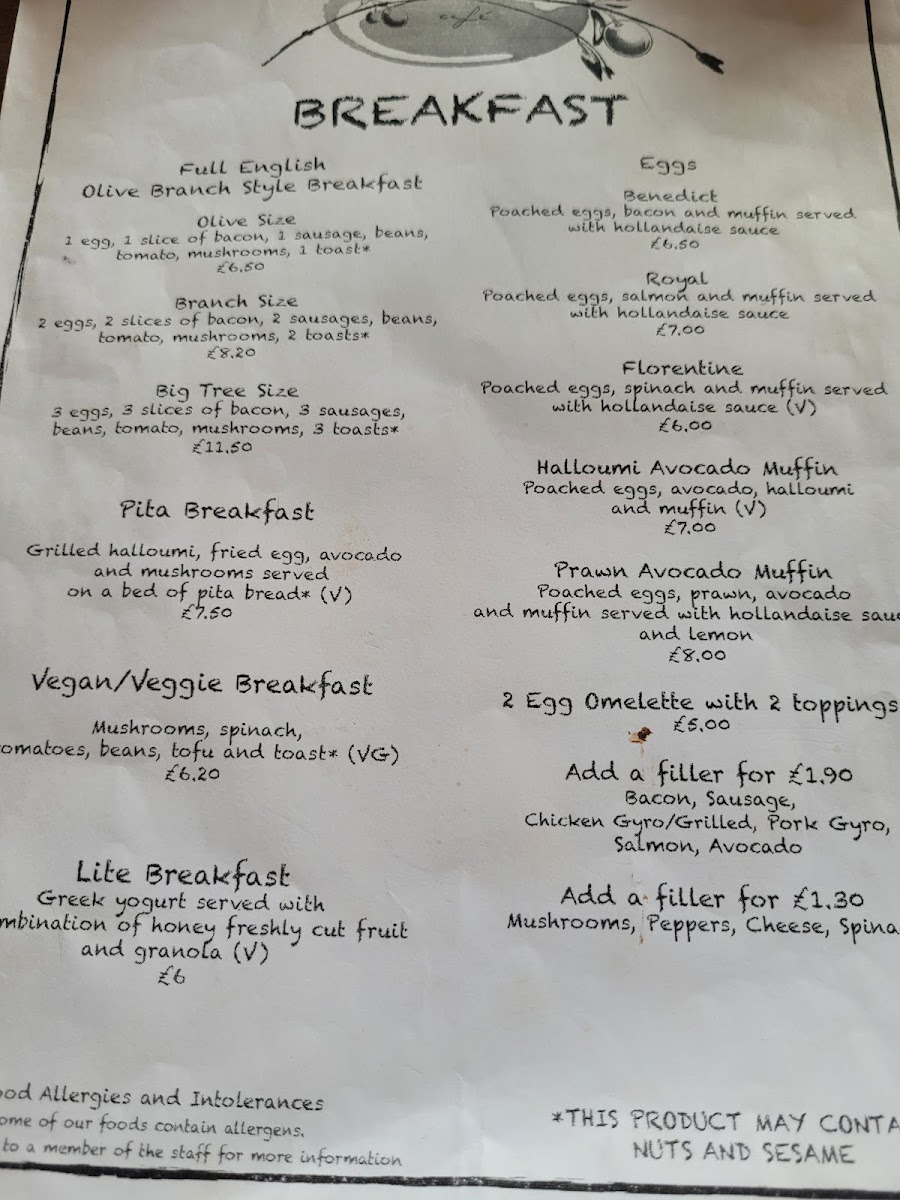 café
BREAKFAST
Full English
Olive Branch Style Breakfast
Olive Size
1 egg, 1 slice of bacon, 1 sausage, beans,
tomato, mushrooms, 1 toast*
£6.50
Branch Size
2 eggs, 2 slices of bacon, 2 sausages, beans,
tomato, mushrooms, 2 toasts*
£8.20
Big Tree Size
3 eggs, 3 slices of bacon, 3 sausages,
beans, tomato, mushrooms, 3 toasts*
£11.50
Pita Breakfast
Grilled halloumi, fried egg, avocado
and mushrooms served
on a bed of pita bread* (V)
£7.50
Vegan/Veggie Breakfast
Mushrooms, spinach,
omatoes, beans, tofu and toast* (VG)
£6.20
Lite Breakfast
Greek yogurt served with
mbination of honey freshly cut fruit
and granola (V)
£6
Eggs
Benedict
Poached eggs, bacon and muffin served
with hollandaise sauce
£6.50
Royal
Poached eggs, salmon and muffin served
with hollandaise sauce
£7.00
Florentine
Poached eggs, spinach and muffin served
with hollandaise sauce (V)
£6.00
Halloumi Avocado Muffin
Poached eggs, avocado, halloumi
and muffin (V)
£7.00
Prawn Avocado Muffin
Poached eggs, prawn, avocado
and muffin served with hollandaise sau
and lemon
£8.00
2 Egg Omelette with 2 toppings
£5.00
Add a filler for £1.90
Bacon, Sausage,
Chicken Gyro/Grilled, Pork Gyro,
Salmon, Avocado
Add a filler for £1.30
Mushrooms, Peppers, Cheese, Spina
ood Allergies and Intolerances
ome of our foods contain allergens.
to a member of the staff for more information
*THIS PRODUCT MAY CONTA
NUTS AND SESAME